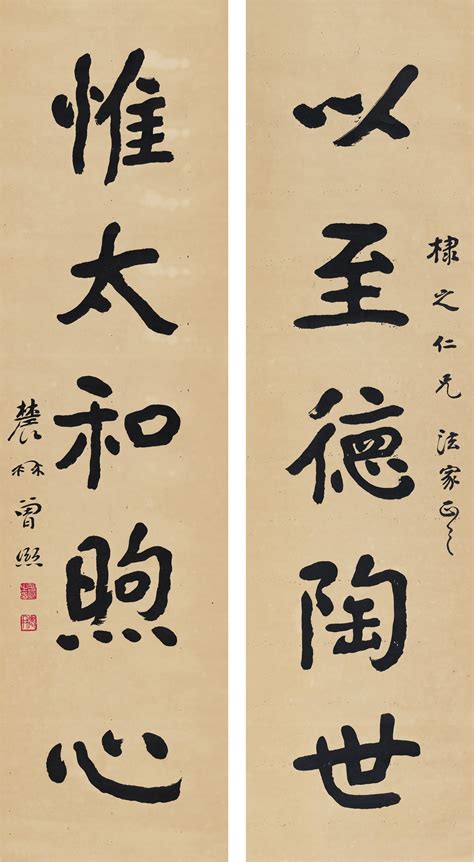 以至德陶世
棣之仁兄 法家正之
惟太和煦心
辳髯曾熙